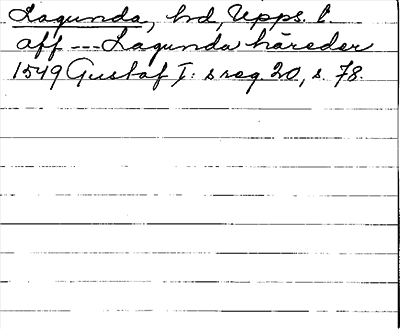 Lagunda, hd, Upps. l.
aff --- Lagunda häreder
1549 Gustaf I: s reg. 20, s. 78.